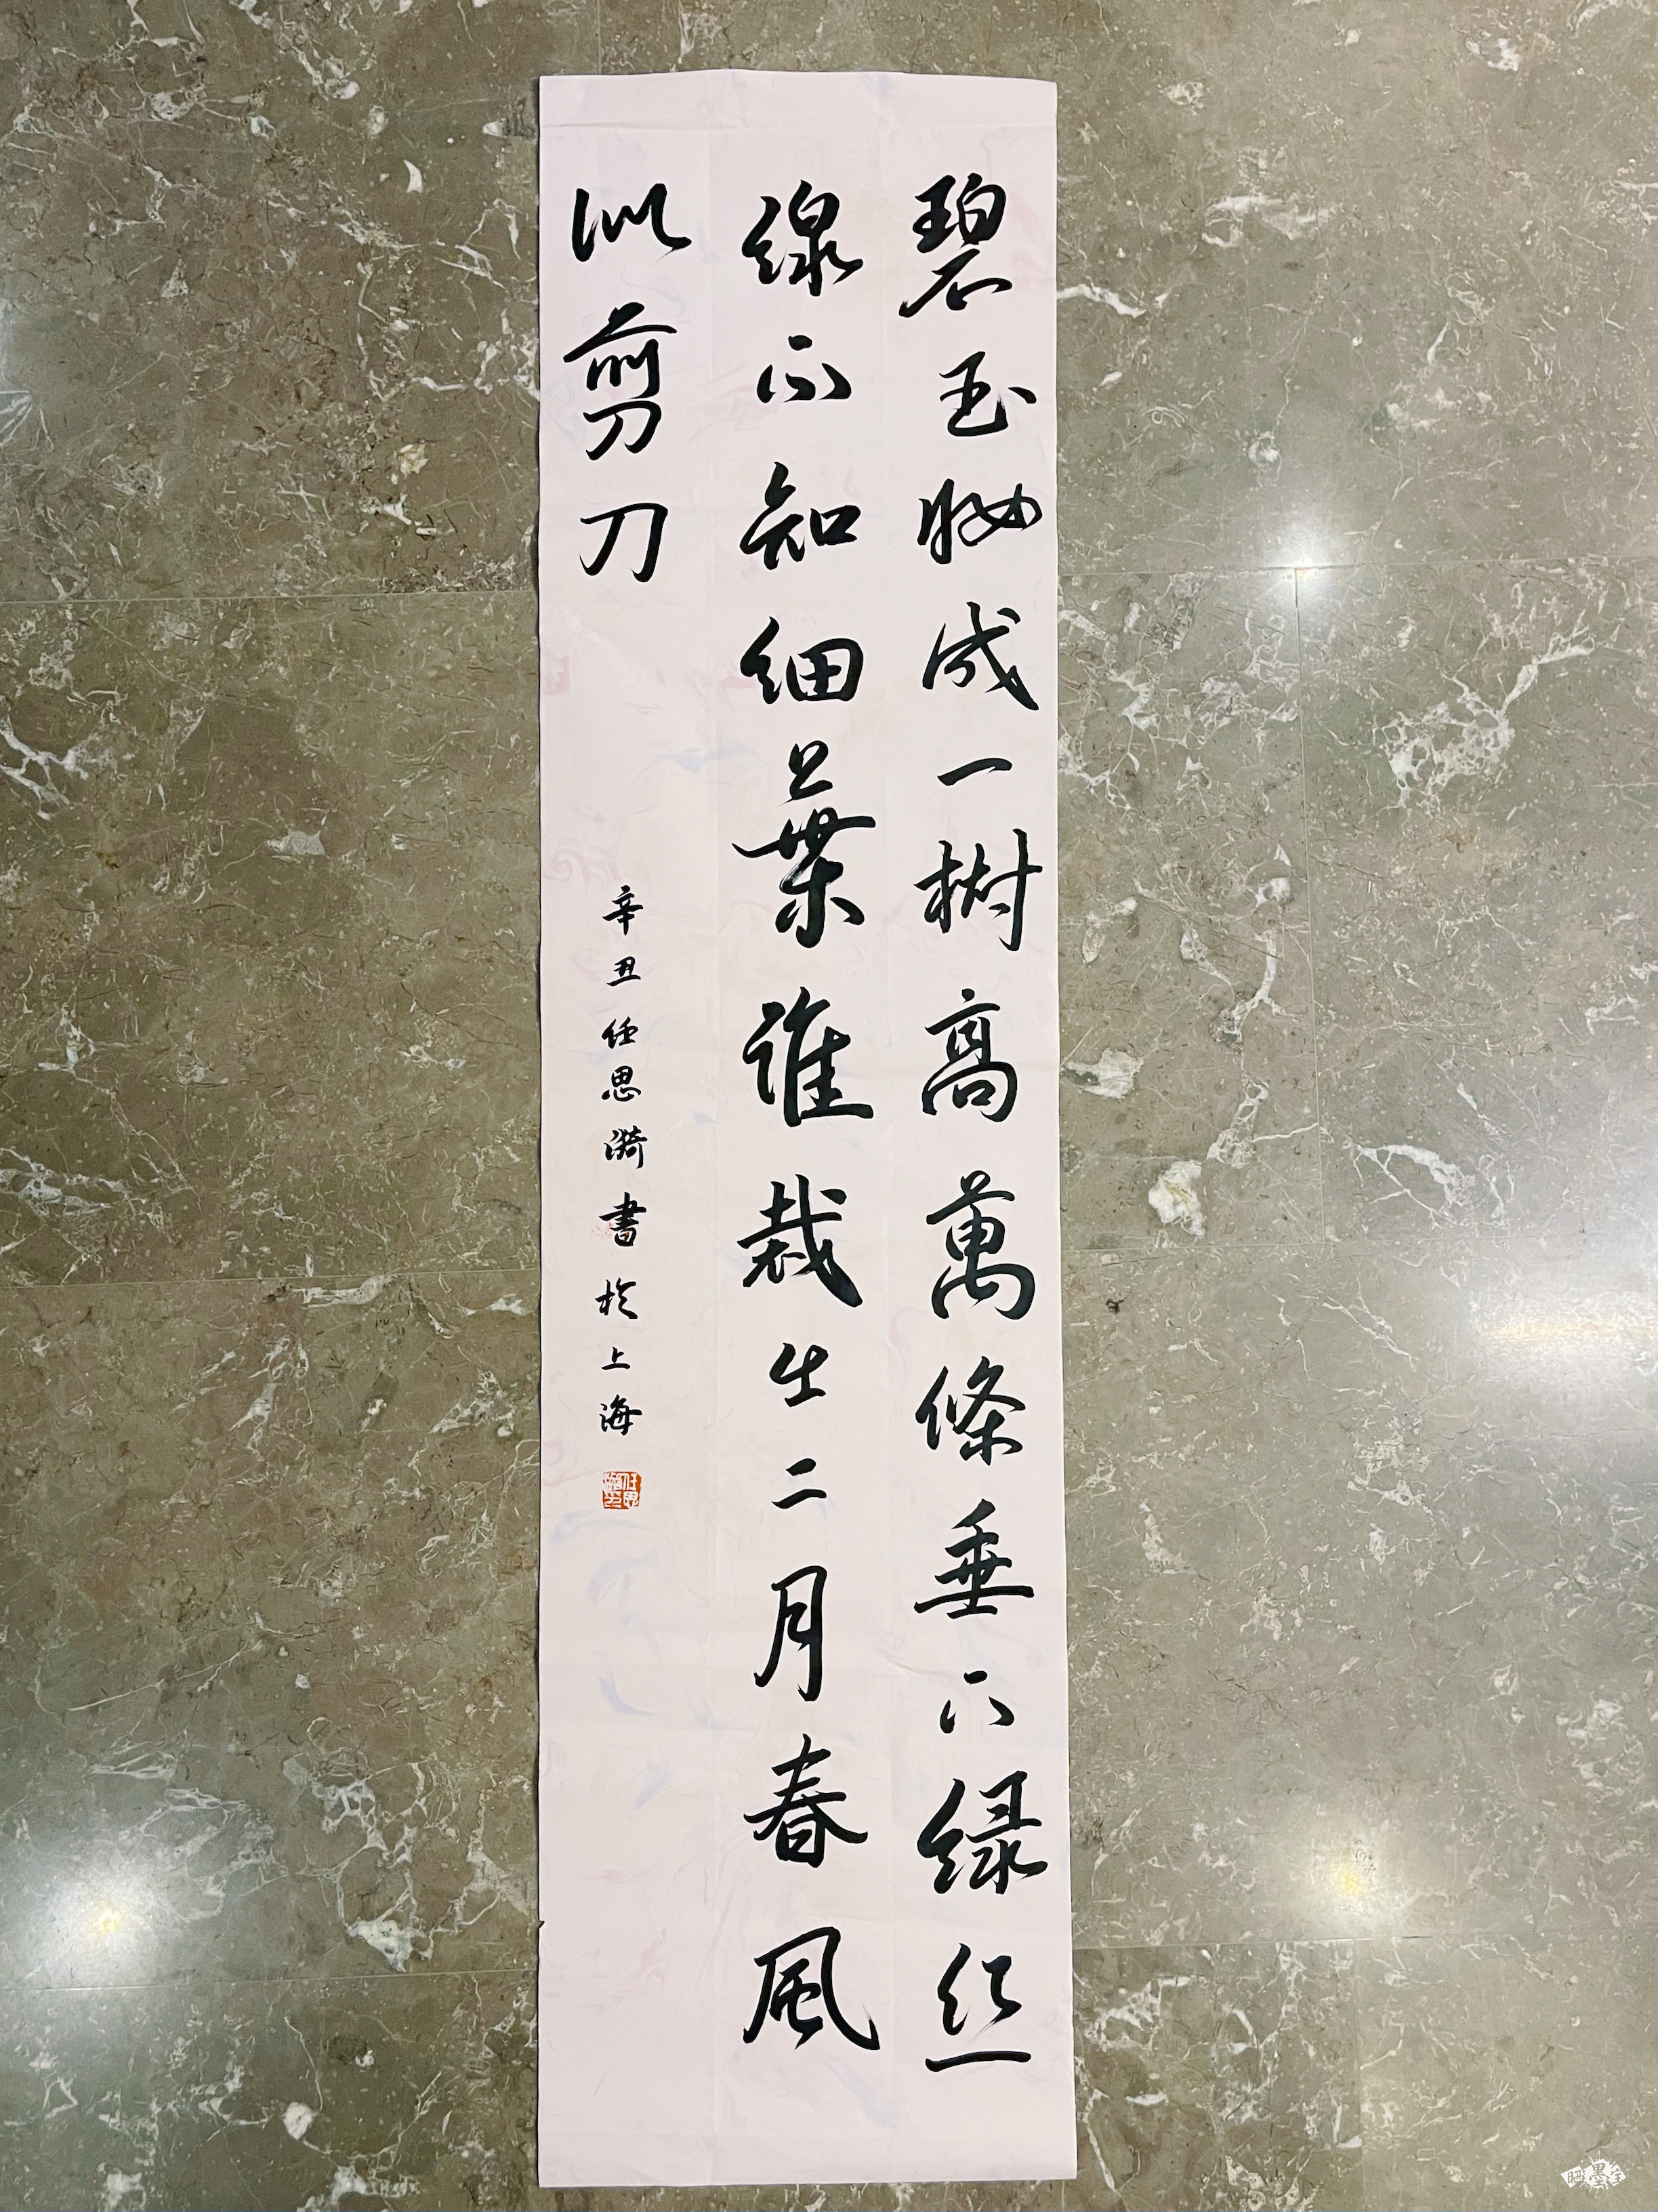 碧玉妝成一樹高萬條垂下緑丝
線不知細葉誰裁出二月春風
似剪刀
辛丑任思漪書於上海
晒墨宝